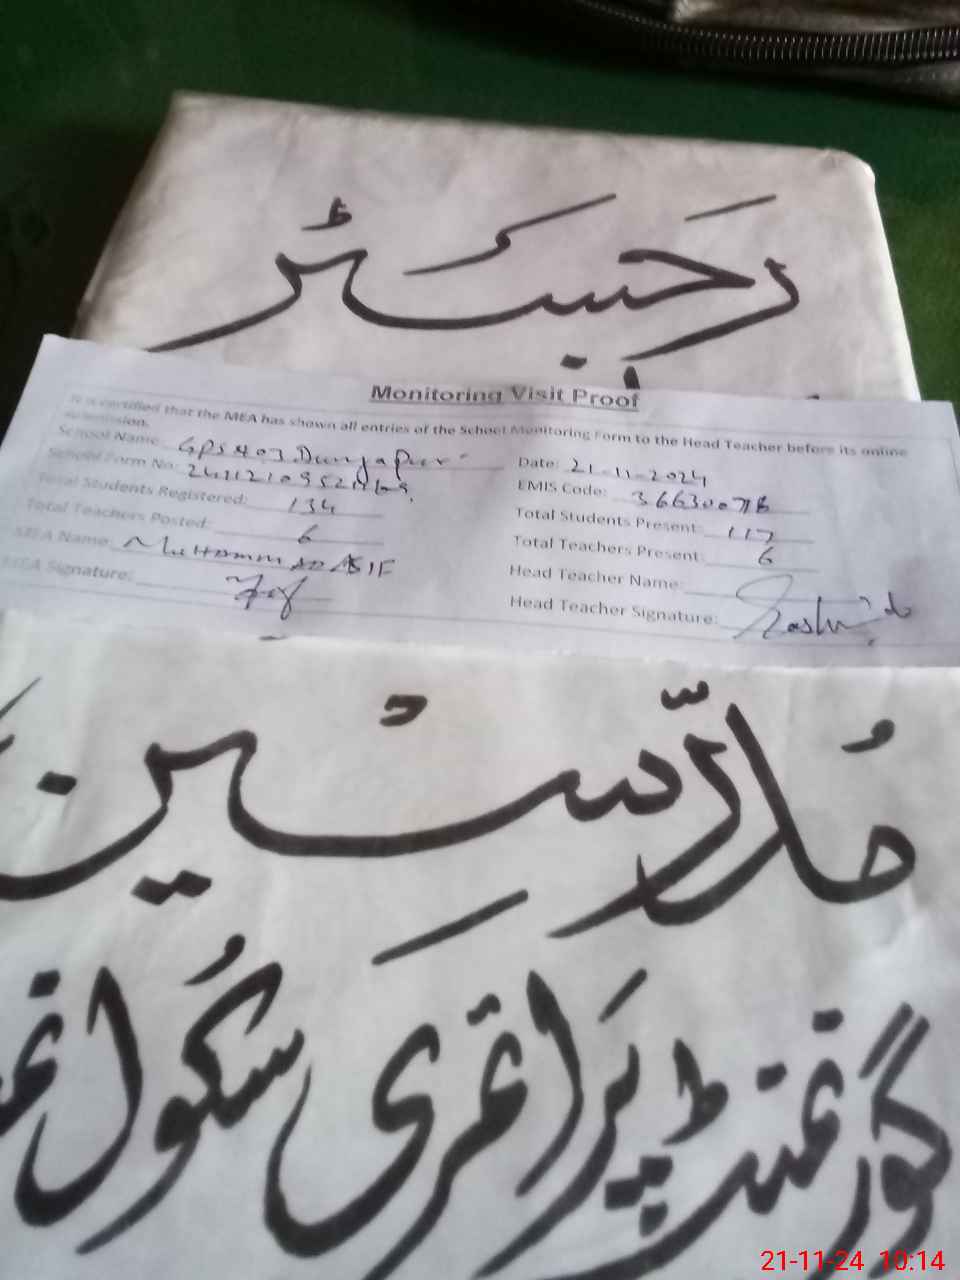 رجسٹر
Monitoring Visit Proof
It is certified that the MEA has shown all entries of the School Monitoring Form to the Head Teacher before its online
submission.
School Name: GPS 403 Dunyapur
Date: 21-11-2024
School Form No:
EMIS Code:
Total Students Registered: 134
Total Students Present: 117
Total Teachers Posted: 6
Total Teachers Present: 6
MEA Name: Muhammad ASIF
Head Teacher Name:
MEA Signature:
Head Teacher Signature:
مُدرّسین
گورنمنٹ پرائمری سکول
21-11-24 10:14